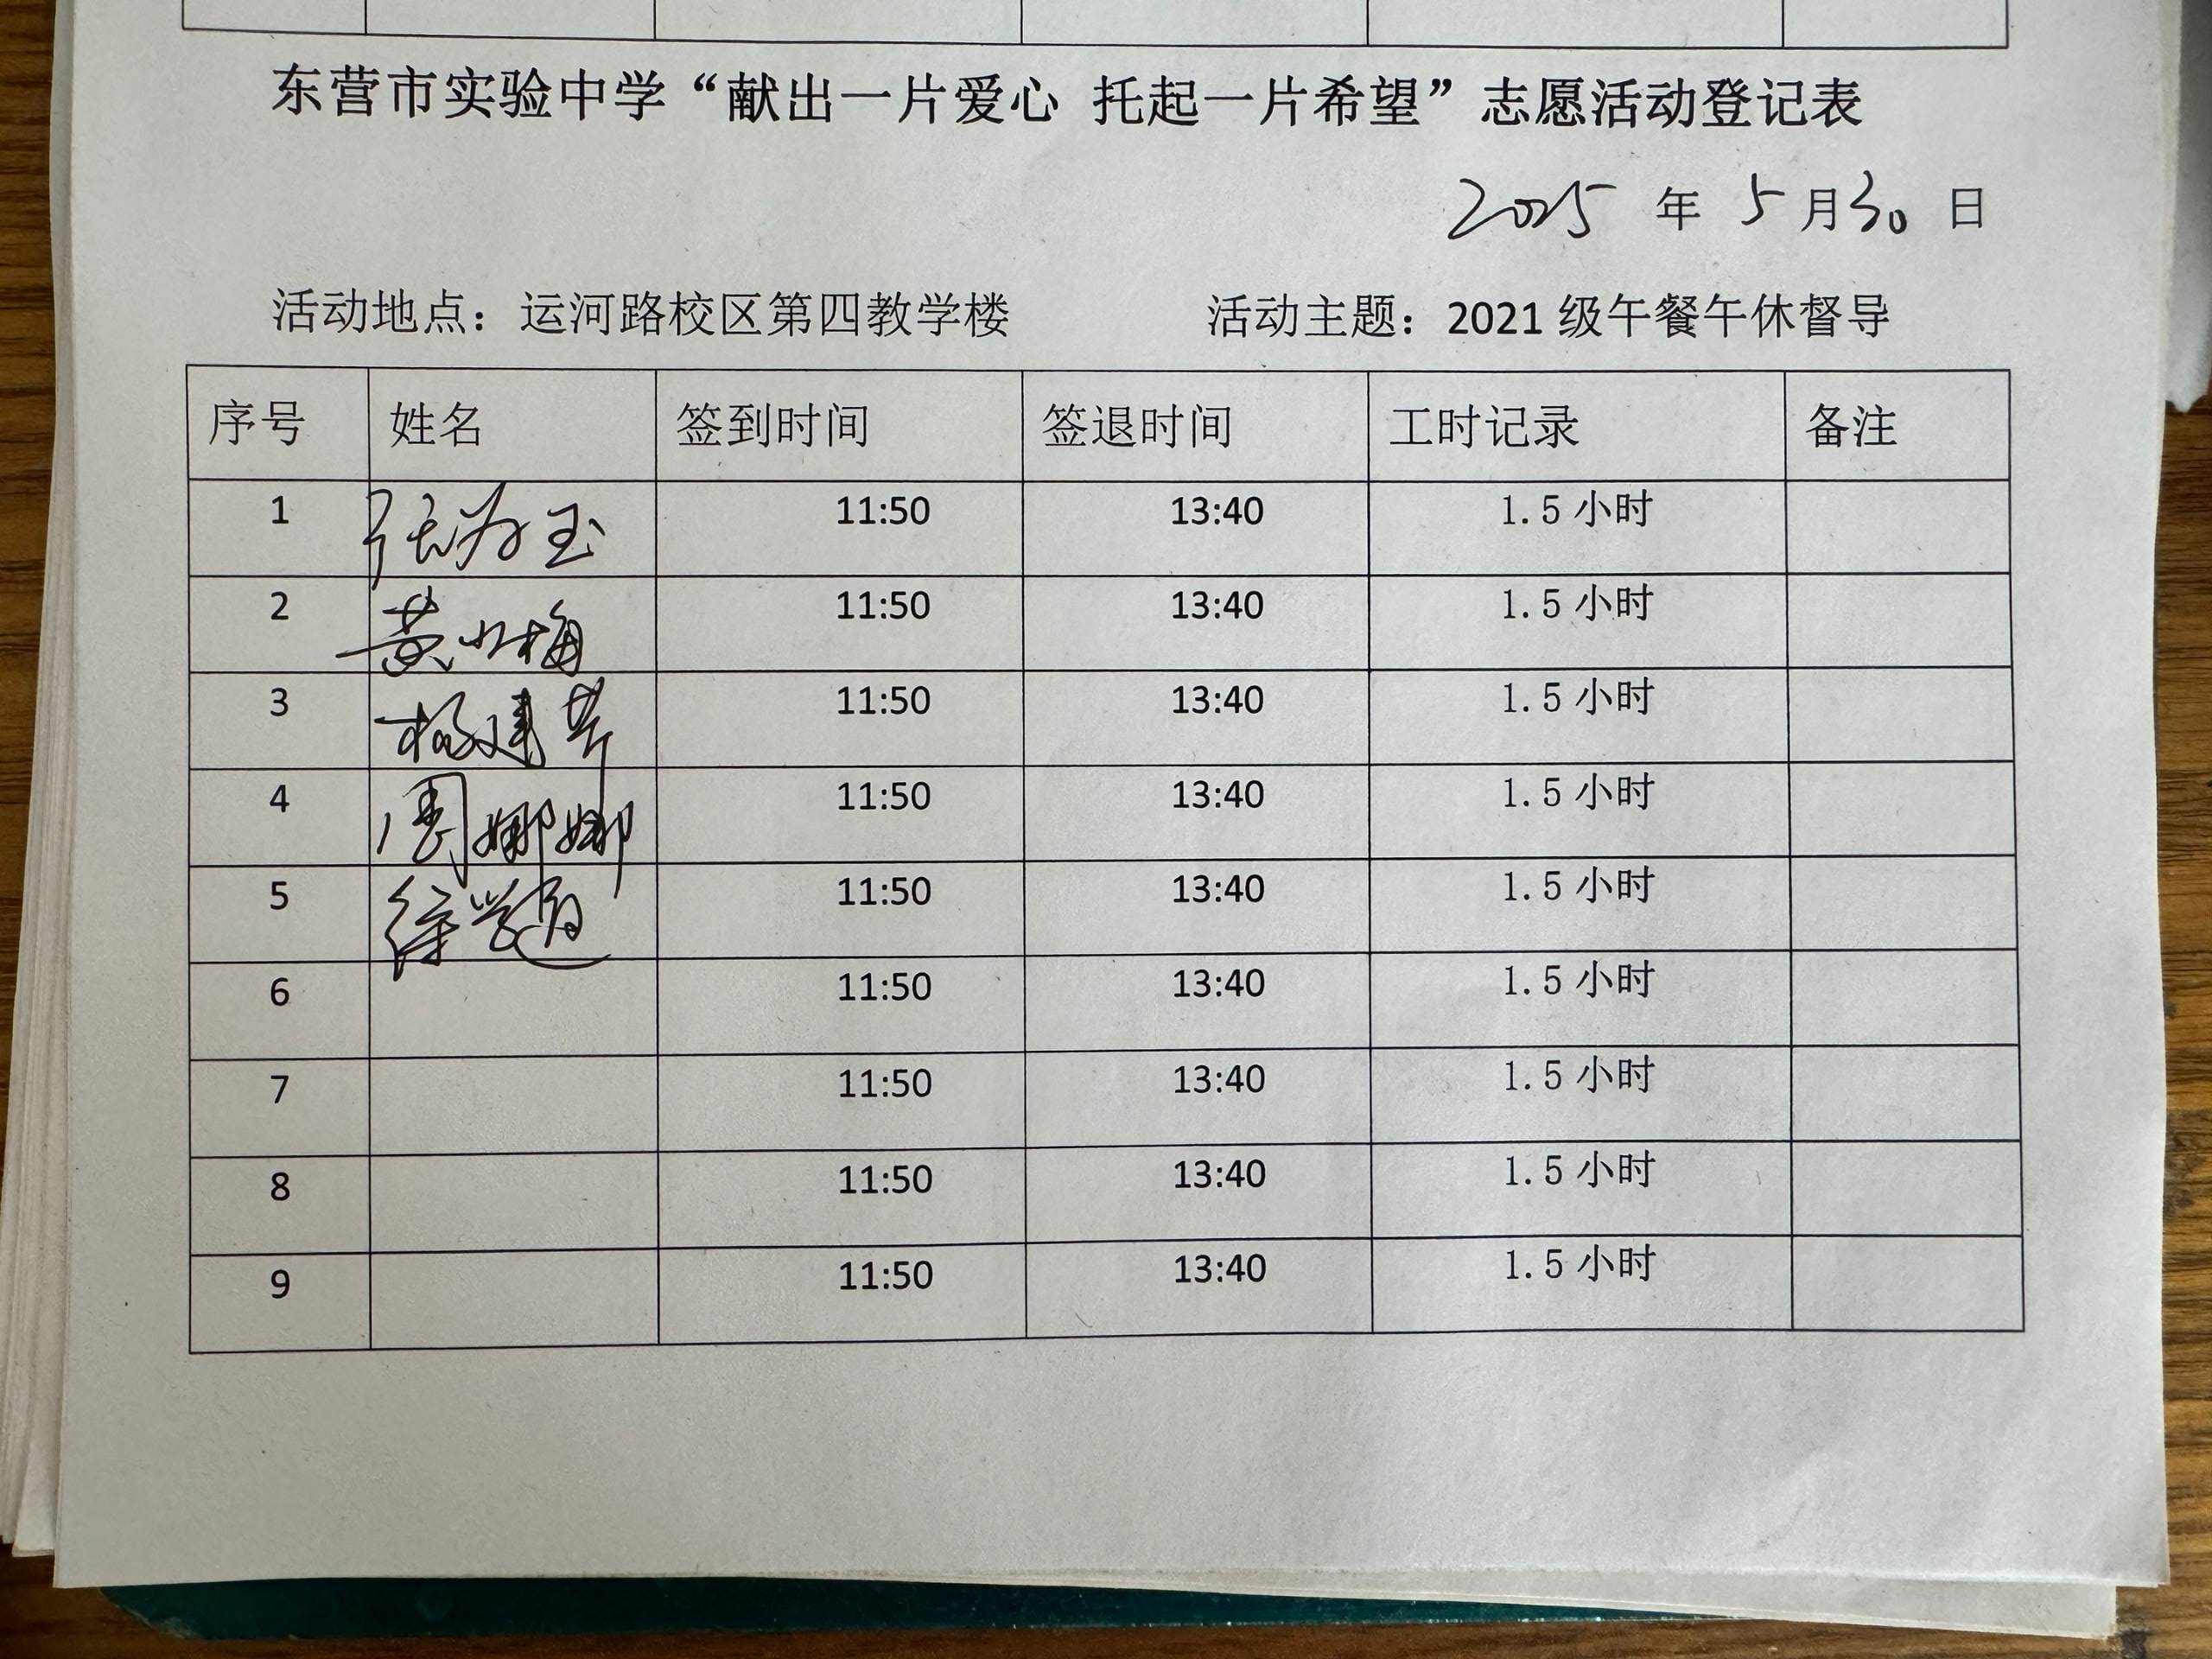 东营市实验中学“献出一片爱心 托起一片希望”志愿活动登记表
2025 年 5 月 30 日
活动地点：运河路校区第四教学楼 活动主题：2021 级午餐午休督导
序号 姓名 签到时间 签退时间 工时记录 备注
1 张为玉 11:50 13:40 1.5 小时
2 黄小梅 11:50 13:40 1.5 小时
3 杨建芳 11:50 13:40 1.5 小时
4 周娜娜 11:50 13:40 1.5 小时
5 徐学 11:50 13:40 1.5 小时
6 11:50 13:40 1.5 小时
7 11:50 13:40 1.5 小时
8 11:50 13:40 1.5 小时
9 11:50 13:40 1.5 小时